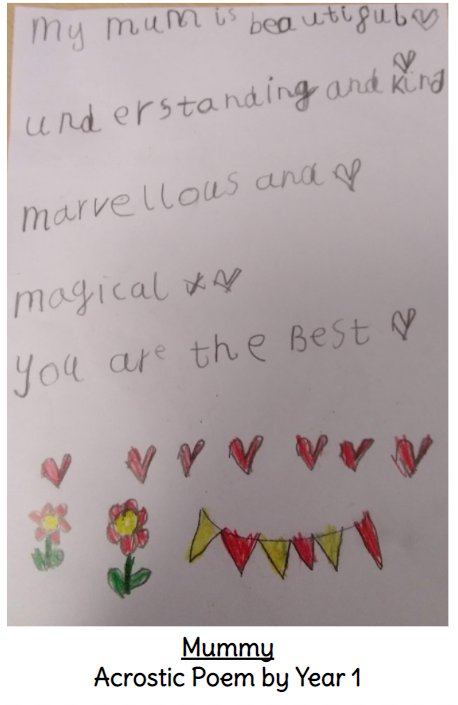 my mum is beautigub
understanding and kind
marvellous and
magical x
you are the Best
Mummy
Acrostic Poem by Year 1